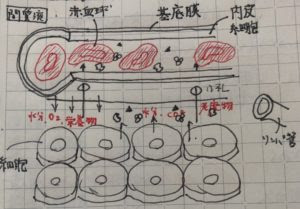 間質液
赤血球
基底膜
内皮
細胞
小孔
水分,O₂
栄養物
水分,CO₂
老廃物
細胞
リンパ管